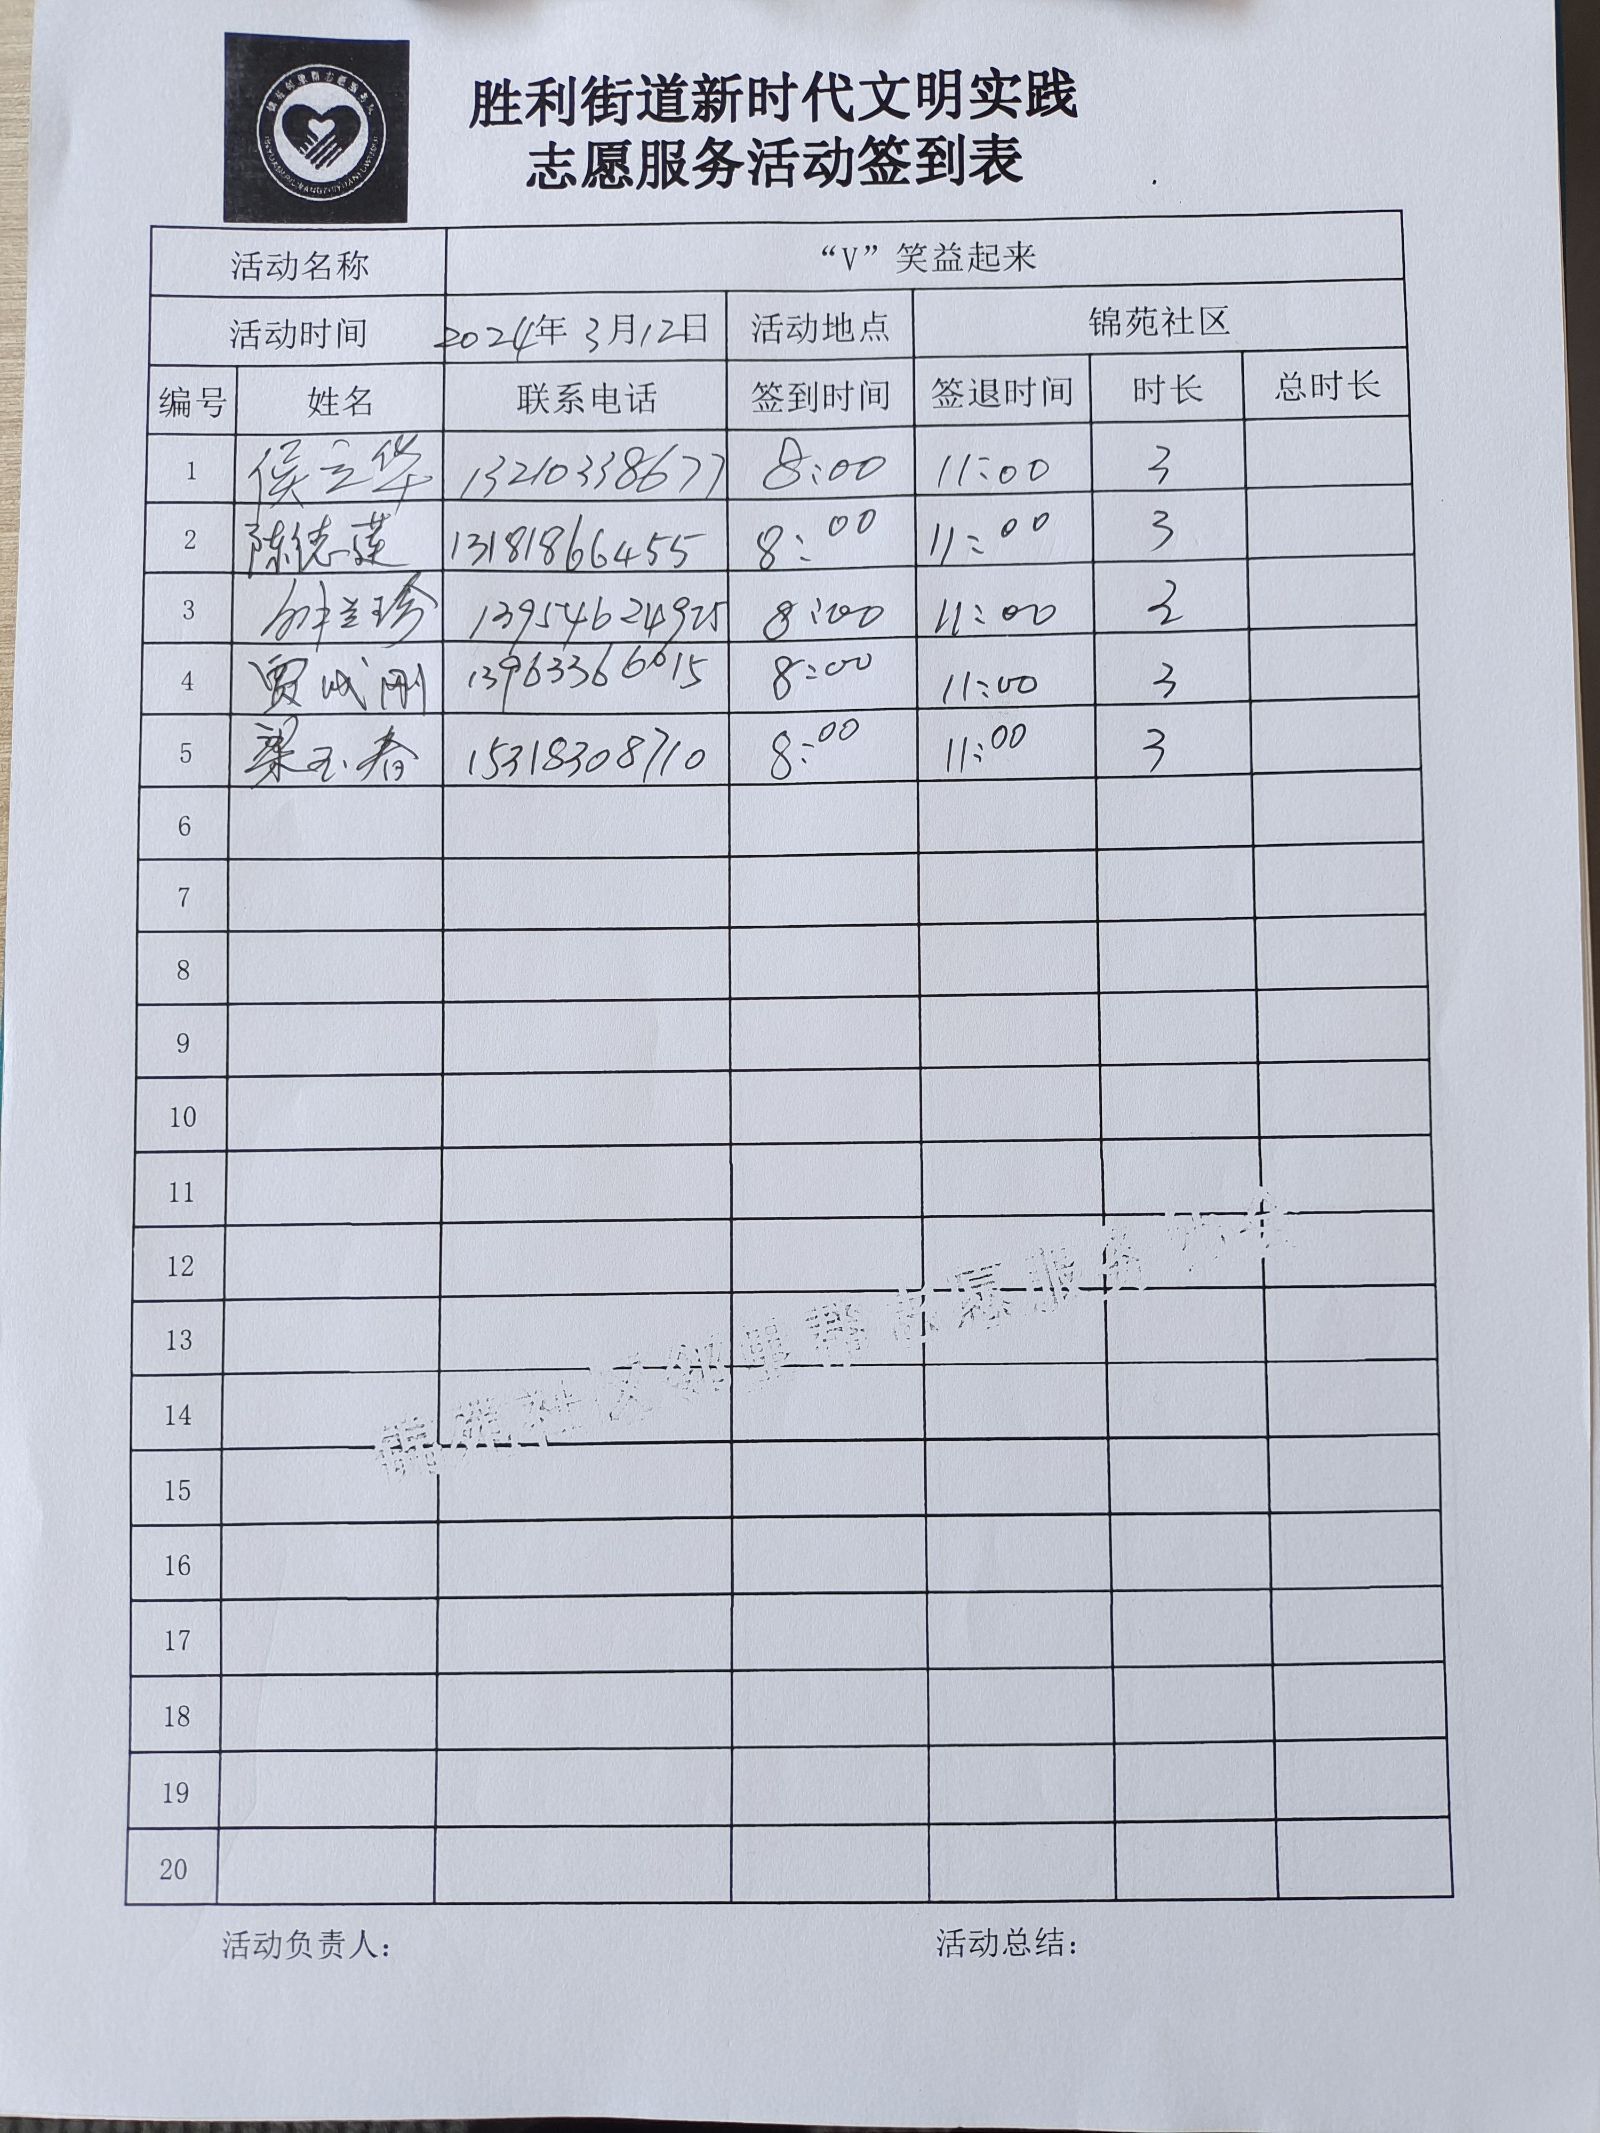 胜利街道新时代文明实践
志愿服务活动签到表
活动名称 “V”笑益起来
活动时间 2024年 3月12日 活动地点 锦苑社区
编号 姓名 联系电话 签到时间 签退时间 时长 总时长
1 侯立华 13210338677 8:00 11:00 3
2 陈德莲 13181866455 8:00 11:00 3
3 兰珍 13954624925 8:00 11:00 3
4 贾成刚 13963366015 8:00 11:00 3
5 梁玉春 15318308710 8:00 11:00 3
6
7
8
9
10
11
12
13
14
15
16
17
18
19
20
锦苑社区邻里帮志愿服务协会
活动负责人： 活动总结：